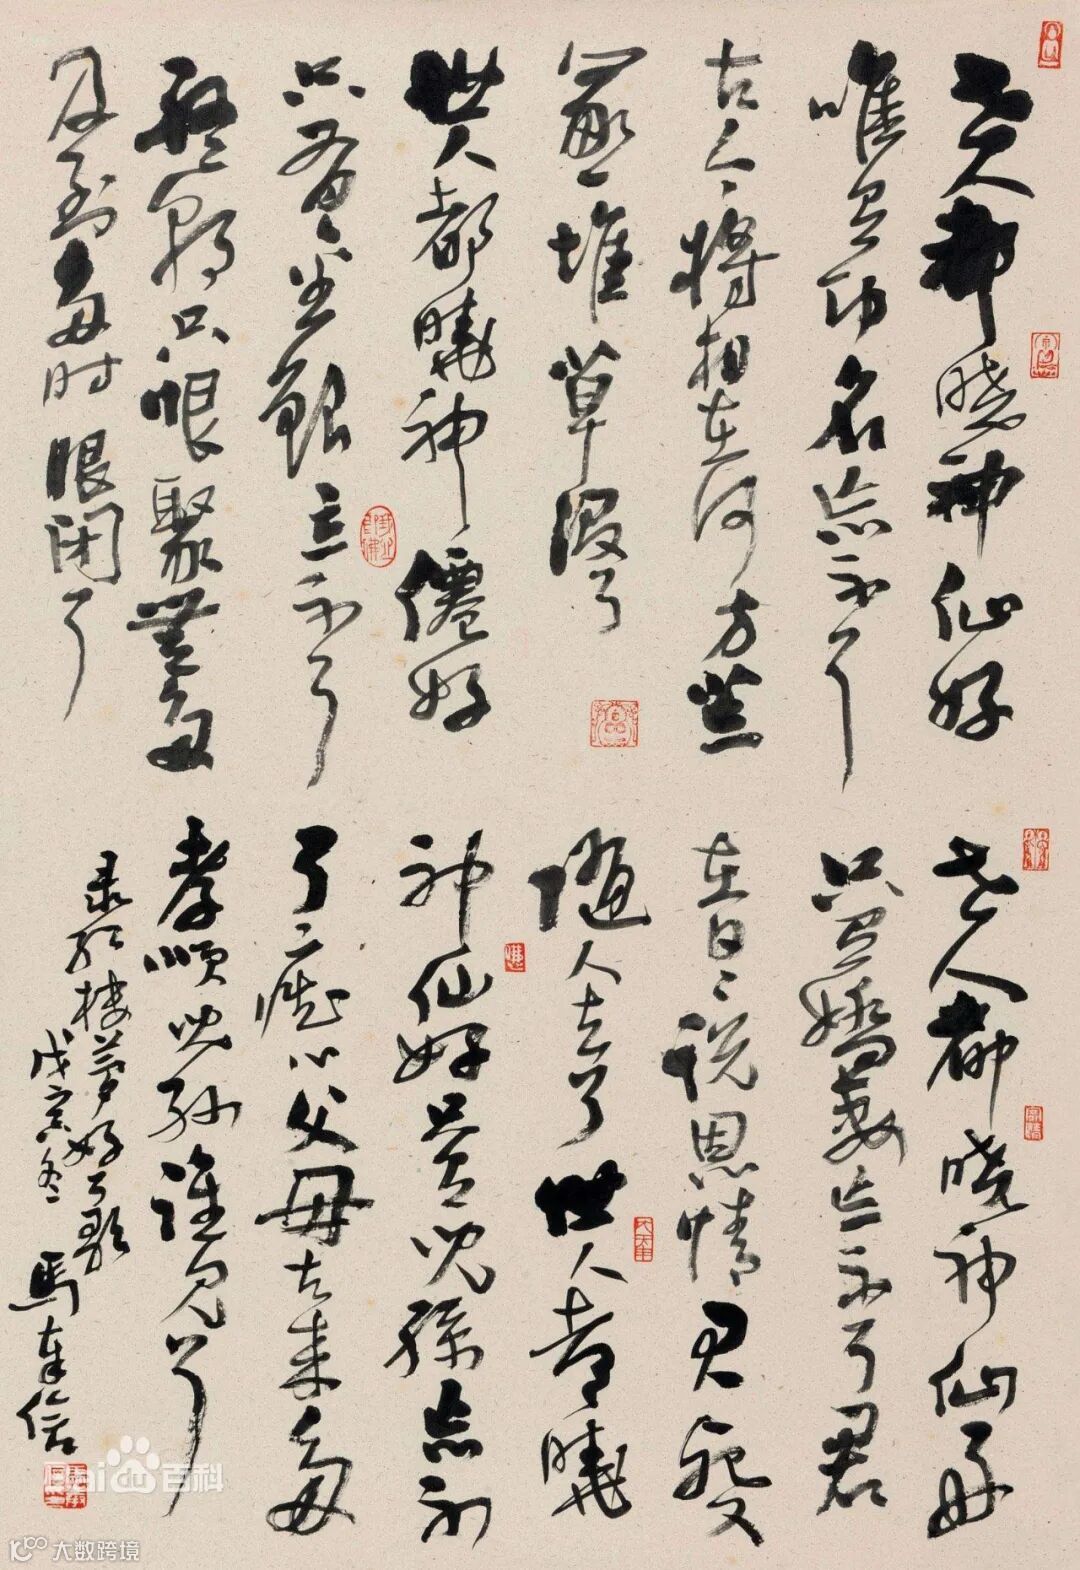 世人都晓神仙好
唯有功名忘不了
古今将相在何方荒
冢一堆草没了
世人都曉神僊好
只有金銀忘不了
终朝只恨聚無多
及到多时眼闭了
世人都晓神仙好
只有嬌妻忘不了君
在日日说恩情君死又
随人去了世人都曉
神仙好只有兒孫忘不
了痴心父母古来多
孝顺兒孙谁见了
录红楼梦好了歌
戊寅冬 馬奉信
Bai百科
大数跨境